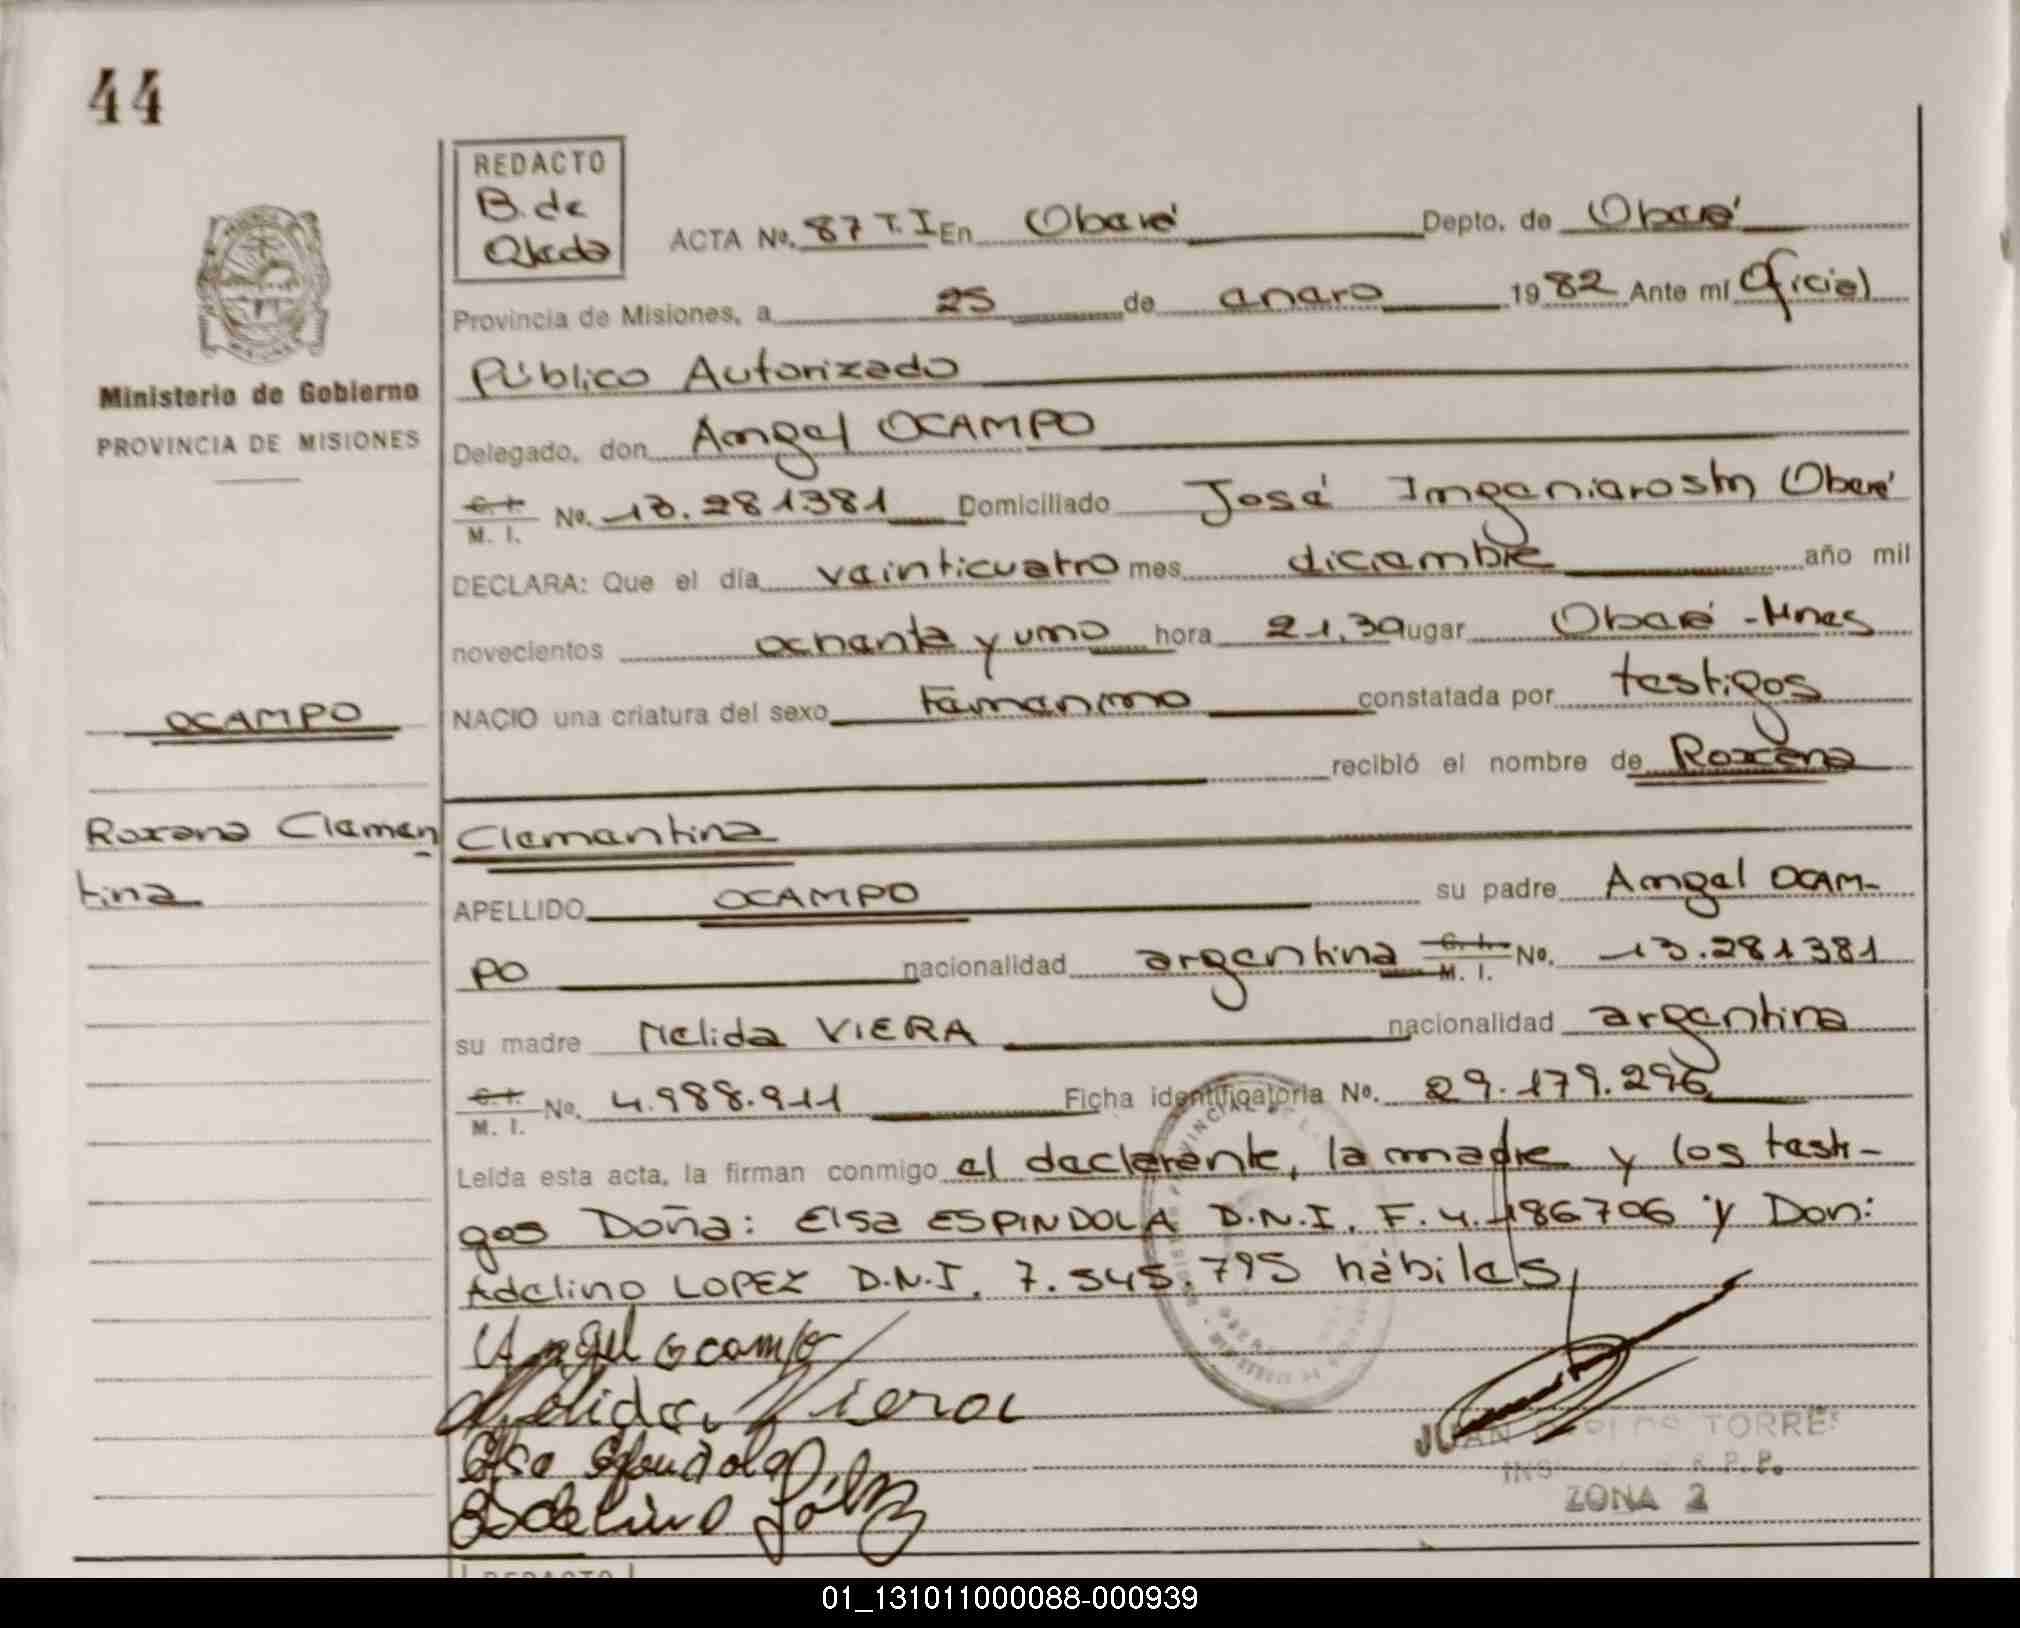 44
REDACTO
B. de
Ojeda
ACTA No. 87 T. I En Oberá Depto. de Oberá
Provincia de Misiones, a 25 de enero 1982 Ante mí Oficial
Público Autorizado
Ministerio de Gobierno
PROVINCIA DE MISIONES
Delegado, don Angel OCAMPO
C. I. / M. I. No. 13.281381 Domiciliado José Ingenieros s/n Oberá
DECLARA: Que el día veinticuatro mes diciembre año mil
novecientos ochenta y uno hora 21,30 lugar Oberá - Mnes
OCAMPO
NACIO una criatura del sexo femenino constatada por testigos
recibió el nombre de Roxana
Roxana Clemen
Clementina
tina
APELLIDO OCAMPO su padre Angel OCAM-
PO nacionalidad argentina C. I. / M. I. No. 13.281381
su madre Nelida VIERA nacionalidad argentina
C. I. / M. I. No. 4.988.911 Ficha identificatoria No. 29.179.296
Leída esta acta, la firman conmigo el declarente, la madre y los testi-
gos Doña: Elsa ESPINDOLA D.N.I. F. 4.186706 y Don:
Adelino LOPEZ D.N.I. 7.545.795 hábiles
Angel Ocampo
Nelida Viera
Elsa Espindola
Adelino López
JUAN CARLOS TORRES
ZONA 2
01_131011000088-000939